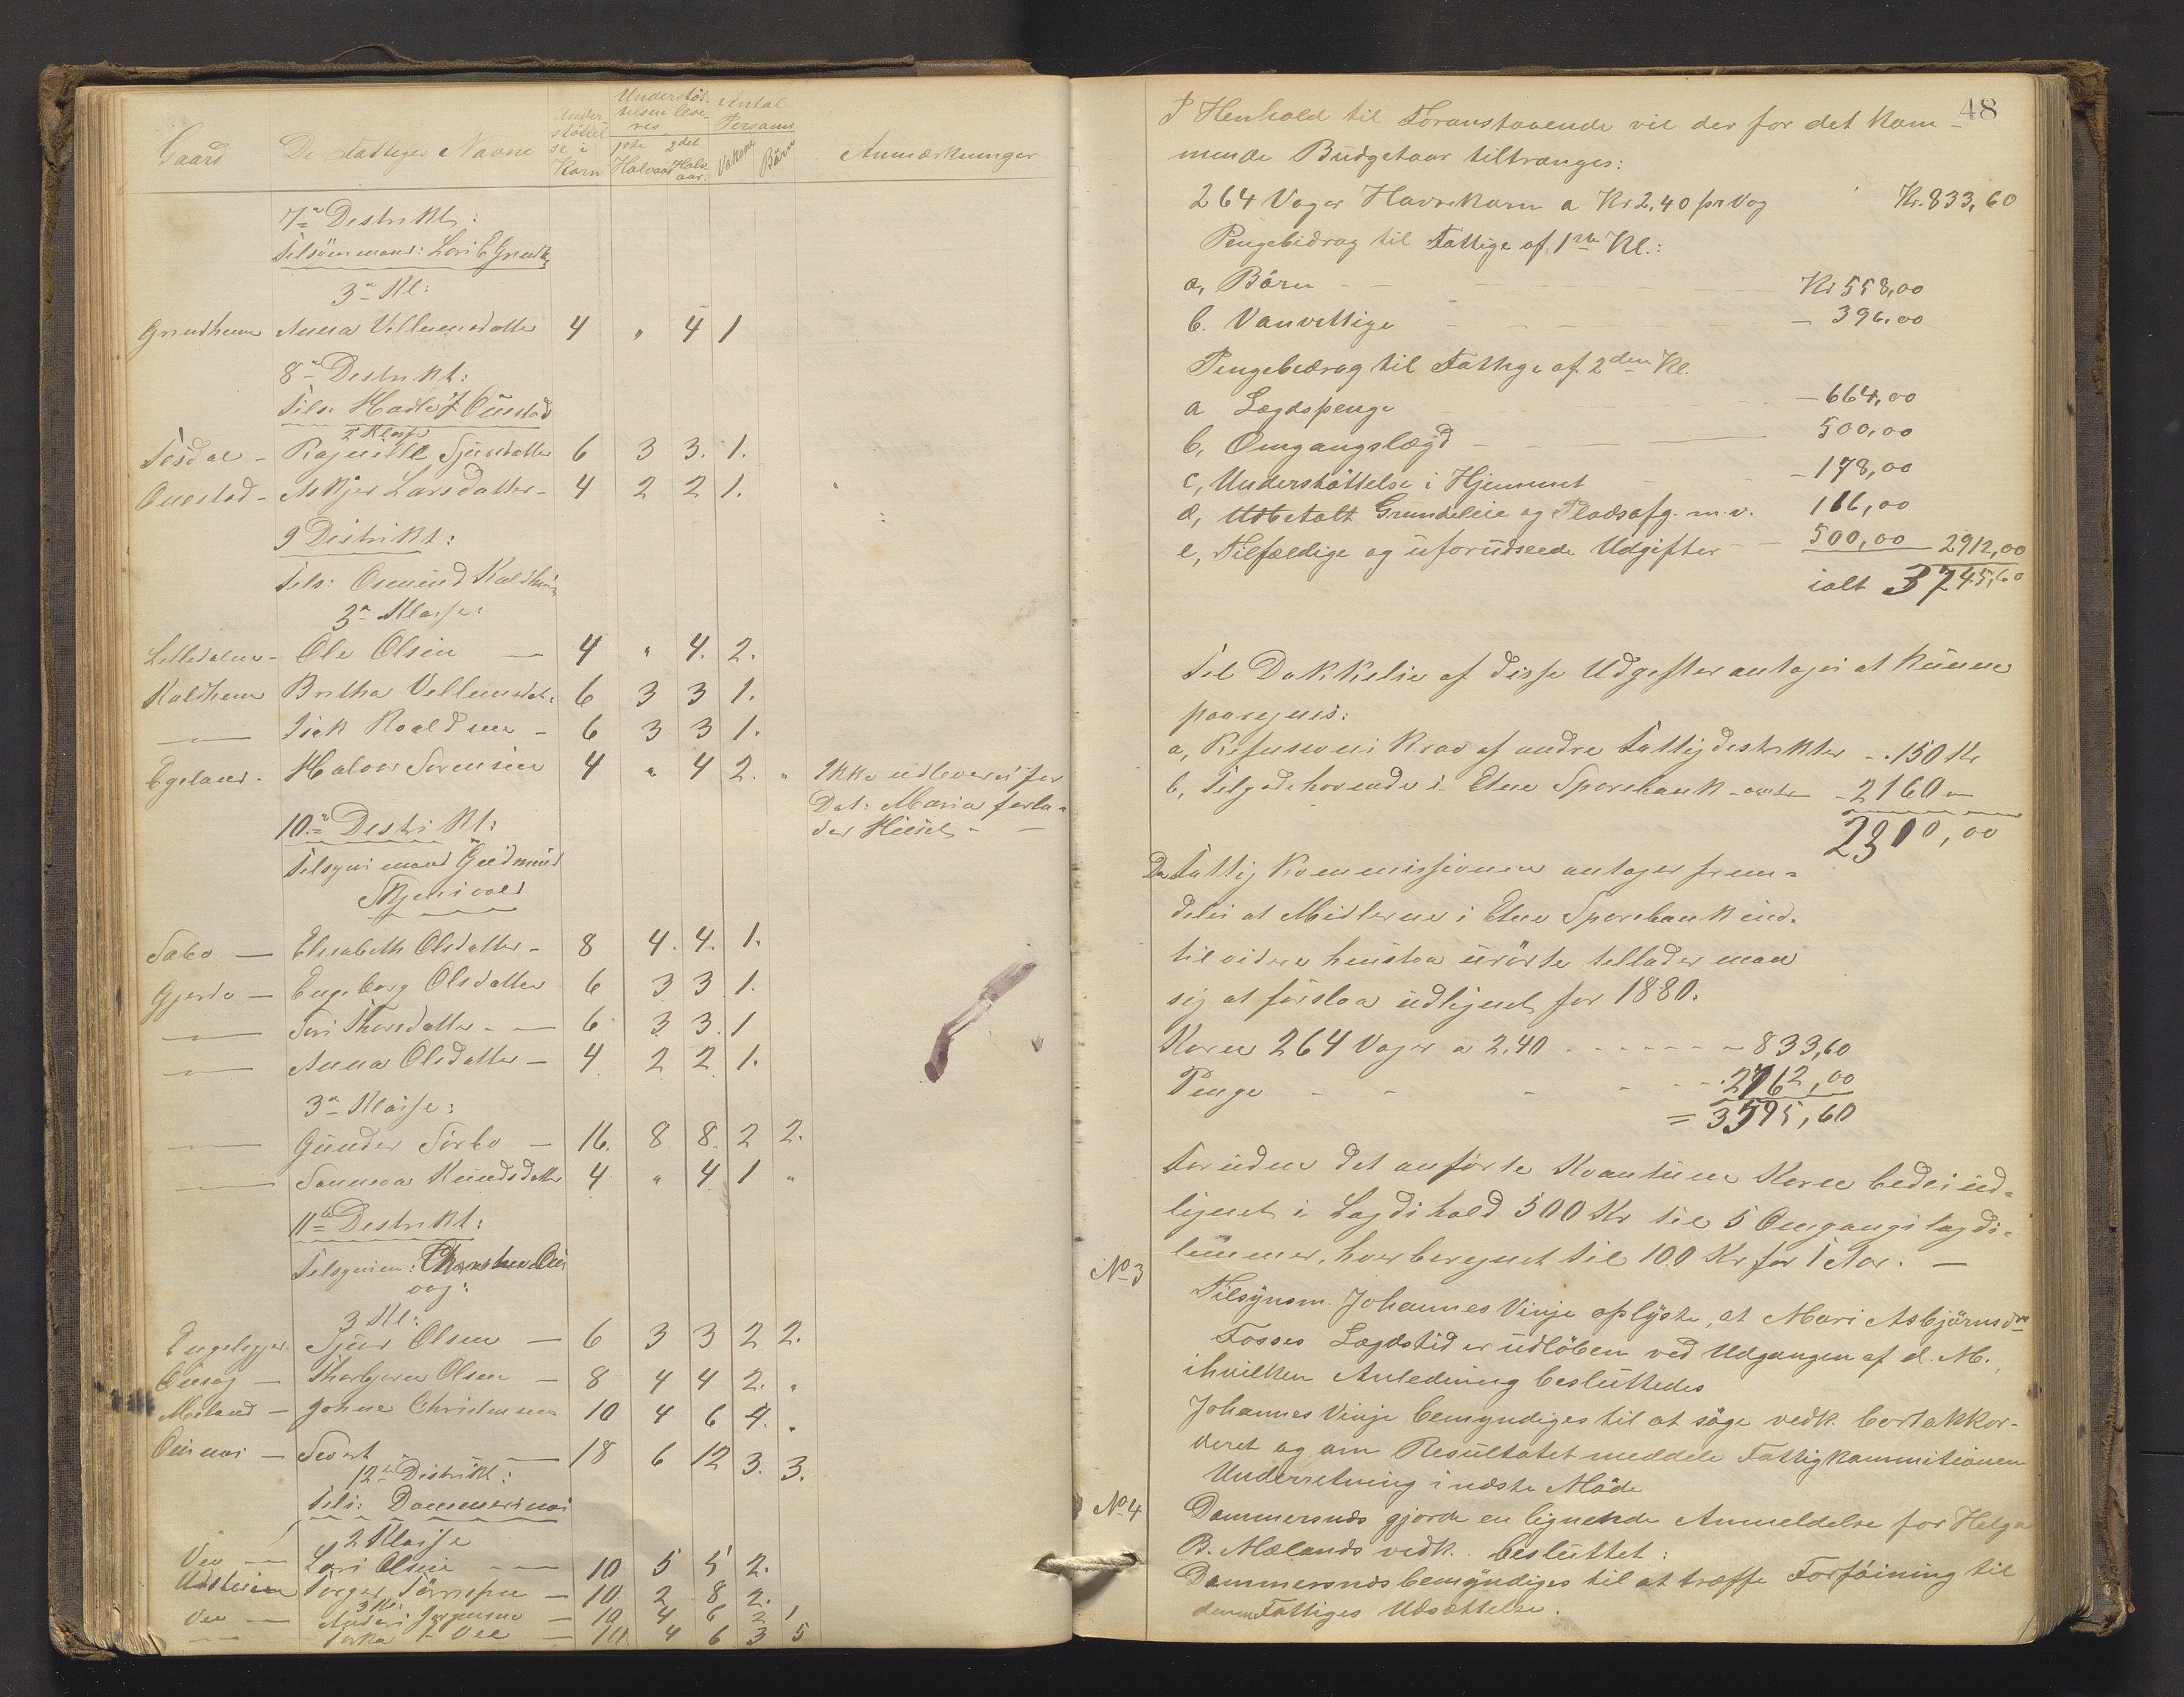 Gaard De Fattiges Navne Understöttelse i Korn Understöttelsen leveres 1ste Halvaar 2det Halvaar Antal Personer Voksne Börn Anmærkninger
7de Distrikt:
Tilsynsmand: Lars E Grindh.
3die Kl:
Grindheim Anna Villumsdatter 4 " 4 1
8de Distrikt:
Tils:
2 Klasse
Tesdal - Ragnilde Sjursdatter 6 3 3. 1.
Ouestad - Askjer Larsdatter - 4 2 2 1.
9 Distrikt:
Tils: Osmund Kaldheim
3die Klasse:
Litledalen - Ole Olsen — 4 " 4. 2.
Kaldheim Britha Villumsdat: 6 3 3 1.
— Isak Roaldsen - 6 3 3 1.
Egeland. Halvor Sørensen 4 " 4 2. " Ikke udleveres för
Dat: Maria forla-
der Huset - —
10de Distrikt:
Tilsynsmand Gudmund
Skjensvold
Sæbo — Elisabeth Olsdatter - 8 4. 4. 1.
Gjerde — Engeborg Olsdatter 6 3 3 1.
— Siri Thorsdatter - — 6 3 3. 1
— Anna Olsdatter — 4. 2 2 1.
3die Klasse:
— Gunder Sörbo — 16. 8 8. 2 2.
— Sannva Knudsdatter 4 " 4 1 "
11te Distrikt:
Tilsynsm:
3 Kl:
Engelsgjer. Sjur Olsen — 6 3 3 2 2.
— Thorbjørn Olsen — 8 4 4 2. "
Mæland — Johne Christensen 10 4 6 4. "
— Sivert — 18 6 12 3. 3.
12te Distrikt:
Tils: Dommersnæs
2 Klasse
Vee — Lars Olsen — 10 5 5 2.
Torger — 10. 2 8 2.
3 Kl:
Vee — Anders Jørgensen — 10 4 6 2 1
— Vee — 10. 4 6 3 5
48
I Henhold til Foranstaaende vil der for det kom-
mende Büdgetaar tiltrænges:
264 Voger Havrekorn a Kr 2,40 pr Vog Kr. 833,60
Pengebidrag til Fattige af 1ste Kl.:
a, Börn - - Kr 558,00
b. Vanvittige - - 396,00
Pengebidrag til Fattige af 2den Kl.
a Lægdspenge - 664,00
b, Omgangslægd - 500,00
c, Understöttelse i Hjemmet - 178,00
d, Udbetalt Grundleie og Pladsafg. m.v. 116,00
e, Tilfældige og uforudseede Udgifter - 500,00 2912,00
ialt 3745,60
Til Dækkelse af disse Udgifter antages at kunne
paaregnes:
a, Refusions Krav af andre Fattigdistrikter - 150 Kr
b, Tilgodehavende i Etne Sparebank - - 2160 "
2310,00
Da Fattig Kommissionen antager frem-
deles at Midlerne i Etne Sparebank ind-
til videre henstaa urörte tillader man
sig at forslaa udlignet for 1880.
Korn 264 Voger a 2.40 - - - - - 833,60
Penge - - - - 2762,00
= 3595,60
Foruden det anförte Kvantum Korn bedes ud-
lignet i Lægdshold 500 Kr til 5 Omgangslægds-
lemmer, hver beregnet til 100 Kr for 1 Aar. —
No 3
Tilsynsm. Johannes Vinje oplyste, at Mari Asbjörnsdtr
Fosses Lægdstid er udlöben ved Udgangen af d. M.,
ihvilken Anledning besluttedes
Johannes Vinje bemyndiges til at söge vedk. bortakkor-
deret og om Resultatet meddele Fattigkommitionen
Underretning i næste Möde
No 4
Dommersnæs gjorde en lignende Anmeldelse for Helga
B. Mælands vedk. besluttet:
Dommersnæs bemyndiges til at træffe Forföining til
denne Fattiges Udsættelse.